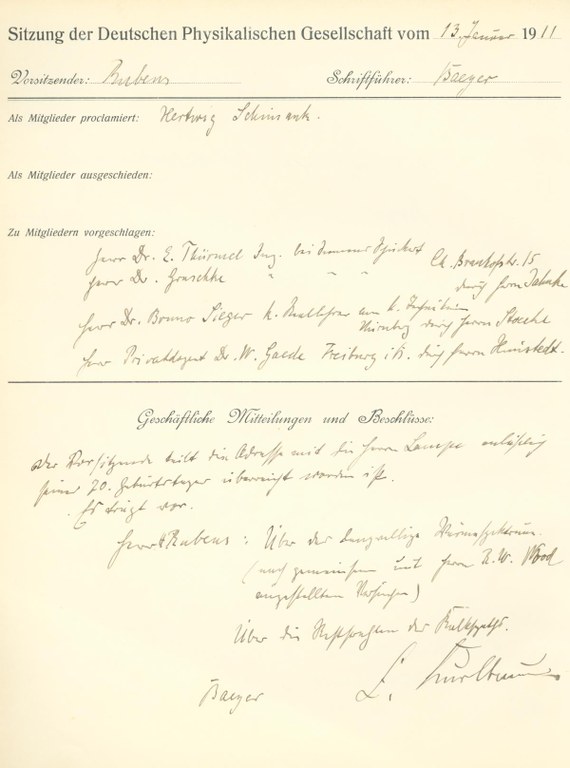 Sitzung der Deutschen Physikalischen Gesellschaft vom 13. Januar 1911
Vorsitzender: Rubens Schriftführer: Baeyer
Als Mitglieder proclamiert: Hertwig
Als Mitglieder ausgeschieden:
Zu Mitgliedern vorgeschlagen:
Herr Dr. E. Thürmel Ing. bei Siemens Ch. 15
Herr Dr. Graschke " " " durch Herrn Jahnke
Herr Dr. Bruno Sieger K. am K.
Nürnberg durch Herrn
Herr Privatdozent Dr. W. Gaede Freiburg i/B. durch Herrn Himstedt.
Geschäftliche Mitteilungen und Beschlüsse:
Der Vorsitzende teilt die Adresse mit die Herrn Lampe anläßlich
seines 70. Geburtstages überreicht worden ist.
Es trägt vor.
Herr Rubens: Über das langwellige Wärmespektrum.
(nach gemeinsam mit Herrn R. W. Wood
angestellten Versuchen)
Über die Reststrahlen des Kalkspats.
Baeyer E. Kurlbaum